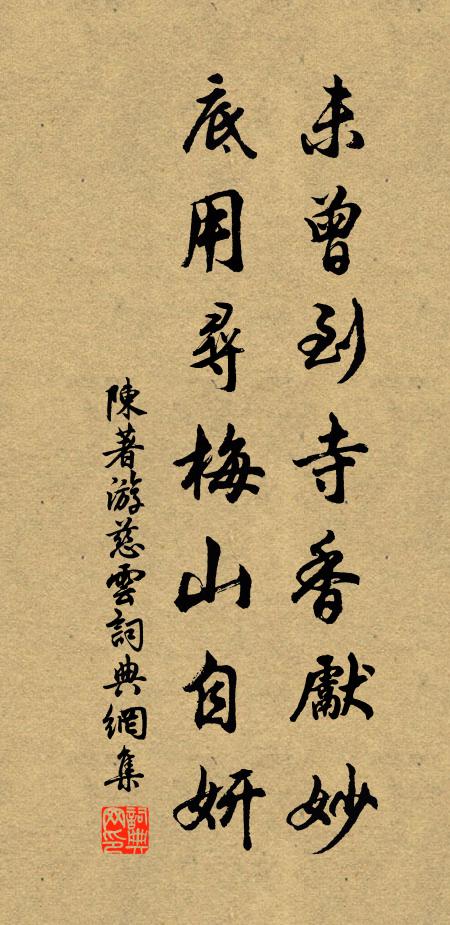 未曾到寺香獻妙
底用尋梅山自妍
陳著游慈雲詞典網集
詞典网印